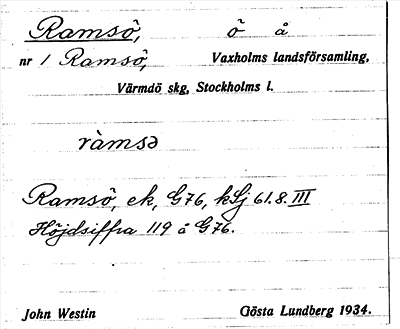 Ramsö, ö å
nr 1 Ramsö, Vaxholms landsförsamling,
Värmdö skg, Stockholms l.
ràmsə
Ramsö, ek, G76, kSj 61.8. III
Höjdsiffra 119 å G76.
John Westin Gösta Lundberg 1934.